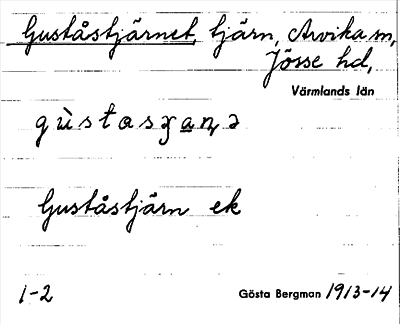 Guståstjärnet, tjärn, Arvika sn,
Jösse hd,
Värmlands län
Guståstjärn ek
1-2 Gösta Bergman 1913-14